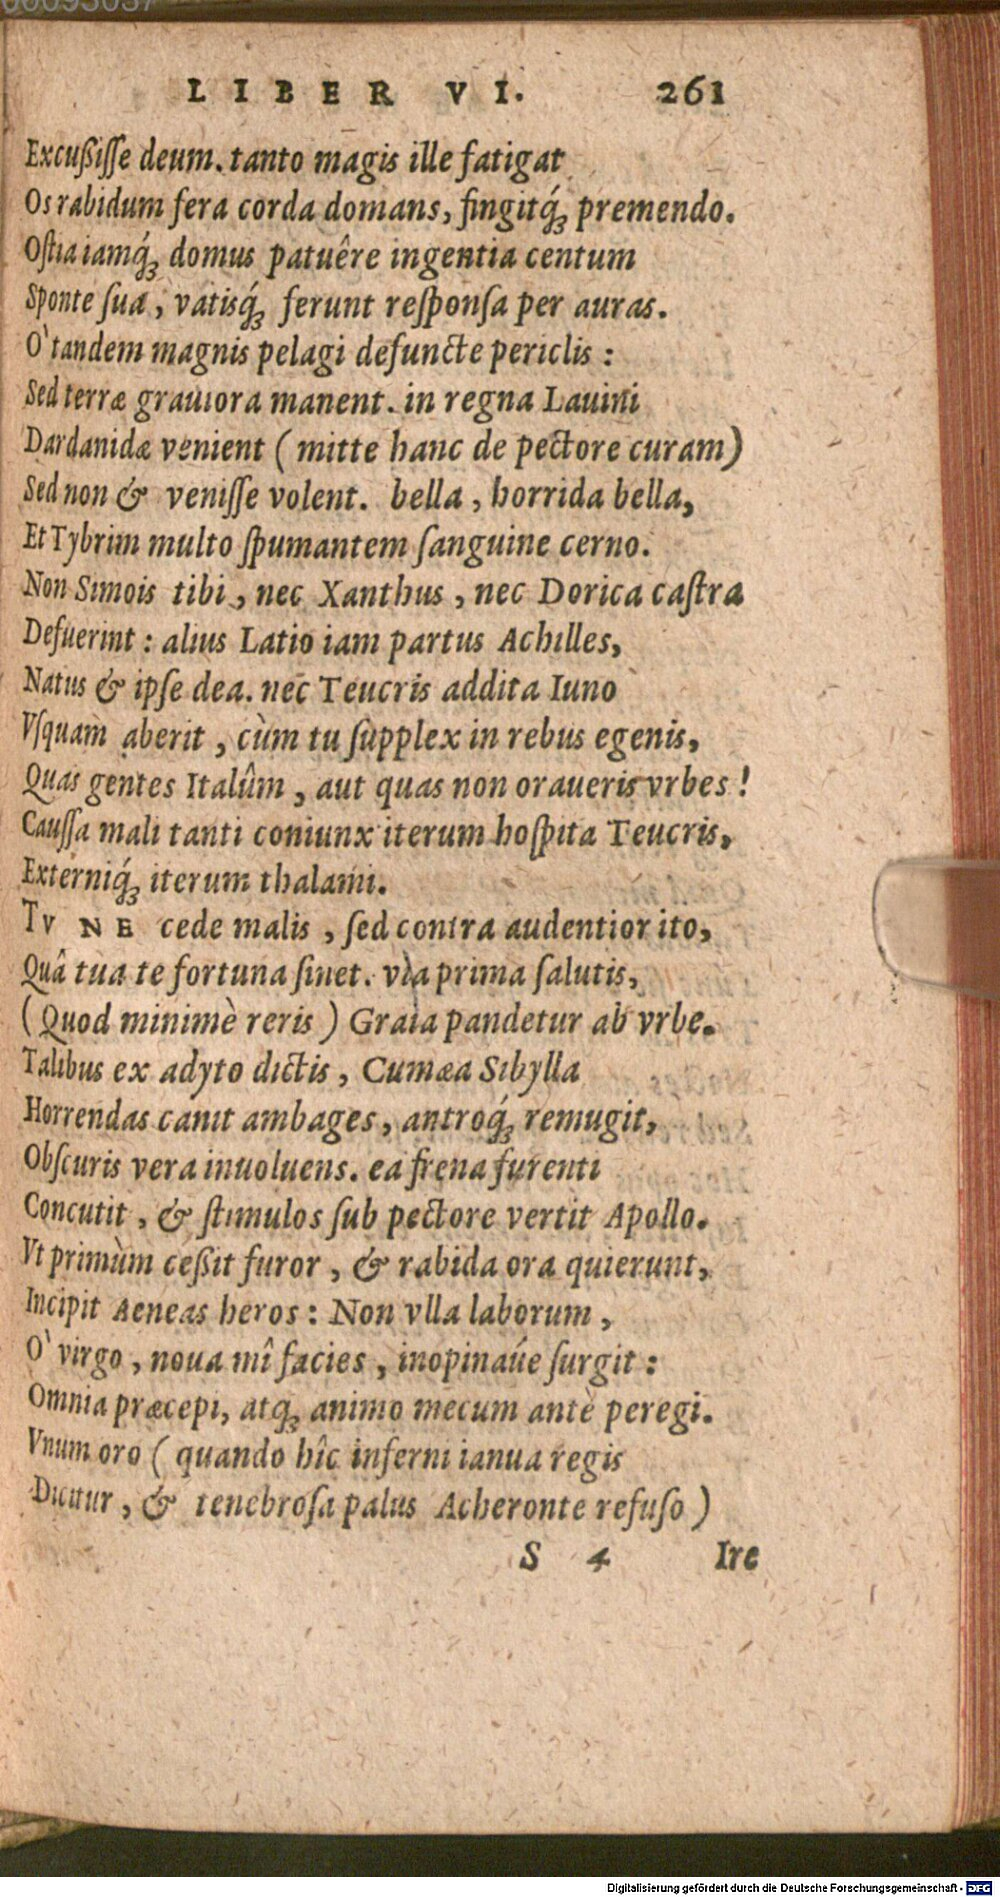 LIBER VI. 261
Excußiſſe deum. tanto magis ille fatigat
Os rabidum fera corda domans, fingitq́ꝫ premendo.
Oſtia iamq́ꝫ domus patuêre ingentia centum
Sponte ſua, vatisq́ꝫ ferunt reſponſa per auras.
O`tandem magnis pelagi defuncte periclis :
Sed terræ grauiora manent. in regna Lauini
Dardanidæ venient ( mitte hanc de pectore curam)
Sed non & veniſſe volent. bella, horrida bella,
Et Tybrim multo ſpumantem ſanguine cerno.
Non Simois tibi, nec Xanthus, nec Dorica caſtra
Defuerint : alius Latio iam partus Achilles,
Natus & ipſe dea. nec Teucris addita Iuno
Vſquam aberit, cùm tu ſupplex in rebus egenis,
Quas gentes Italûm, aut quas non oraueris vrbes !
Cauſſa mali tanti coniunx iterum hoſpita Teucris,
Externiq́ꝫ iterum thalami.
TV NE cede malis, ſed contra audentior ito,
Quâ tua te fortuna ſinet. via prima ſalutis,
(Quod minimè reris ) Graia pandetur ab vrbe.
Talibus ex adyto dictis, Cumæa Sibylla
Horrendas canit ambages, antroq́ꝫ remugit,
Obſcuris vera inuoluens. ea frena furenti
Concutit, & ſtimulos ſub pectore vertit Apollo.
Vt primùm ceßit furor, & rabida ora quierunt,
Incipit Aeneas heros : Non vlla laborum,
O` virgo, noua mî facies, inopináue ſurgit :
Omnia præcepi, atqꝫ animo mecum antè peregi.
Vnum oro ( quando hîc inferni ianua regis
Dicitur, & tenebroſa palus Acheronte refuſo )
S 4 Ire
Digitalisierung gefördert durch die Deutsche Forschungsgemeinschaft - DFG